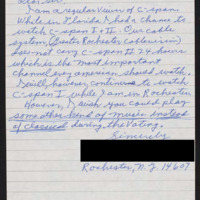 Dear Sir:
I am a regular viewer of c-span.
While in Florida I had a chance to
watch c-span I & II. Our cable
system, (Greater Rochester Cablevision)
does not carry c-span II 24 hours
which is the most important
channel any american should watch.
I will however continue to watch
c-span I while I am in Rochester
However, I wish you could play
some other kind of music instead
of classical during the Voting.
Sincerely
Rochester, N.Y. 14607